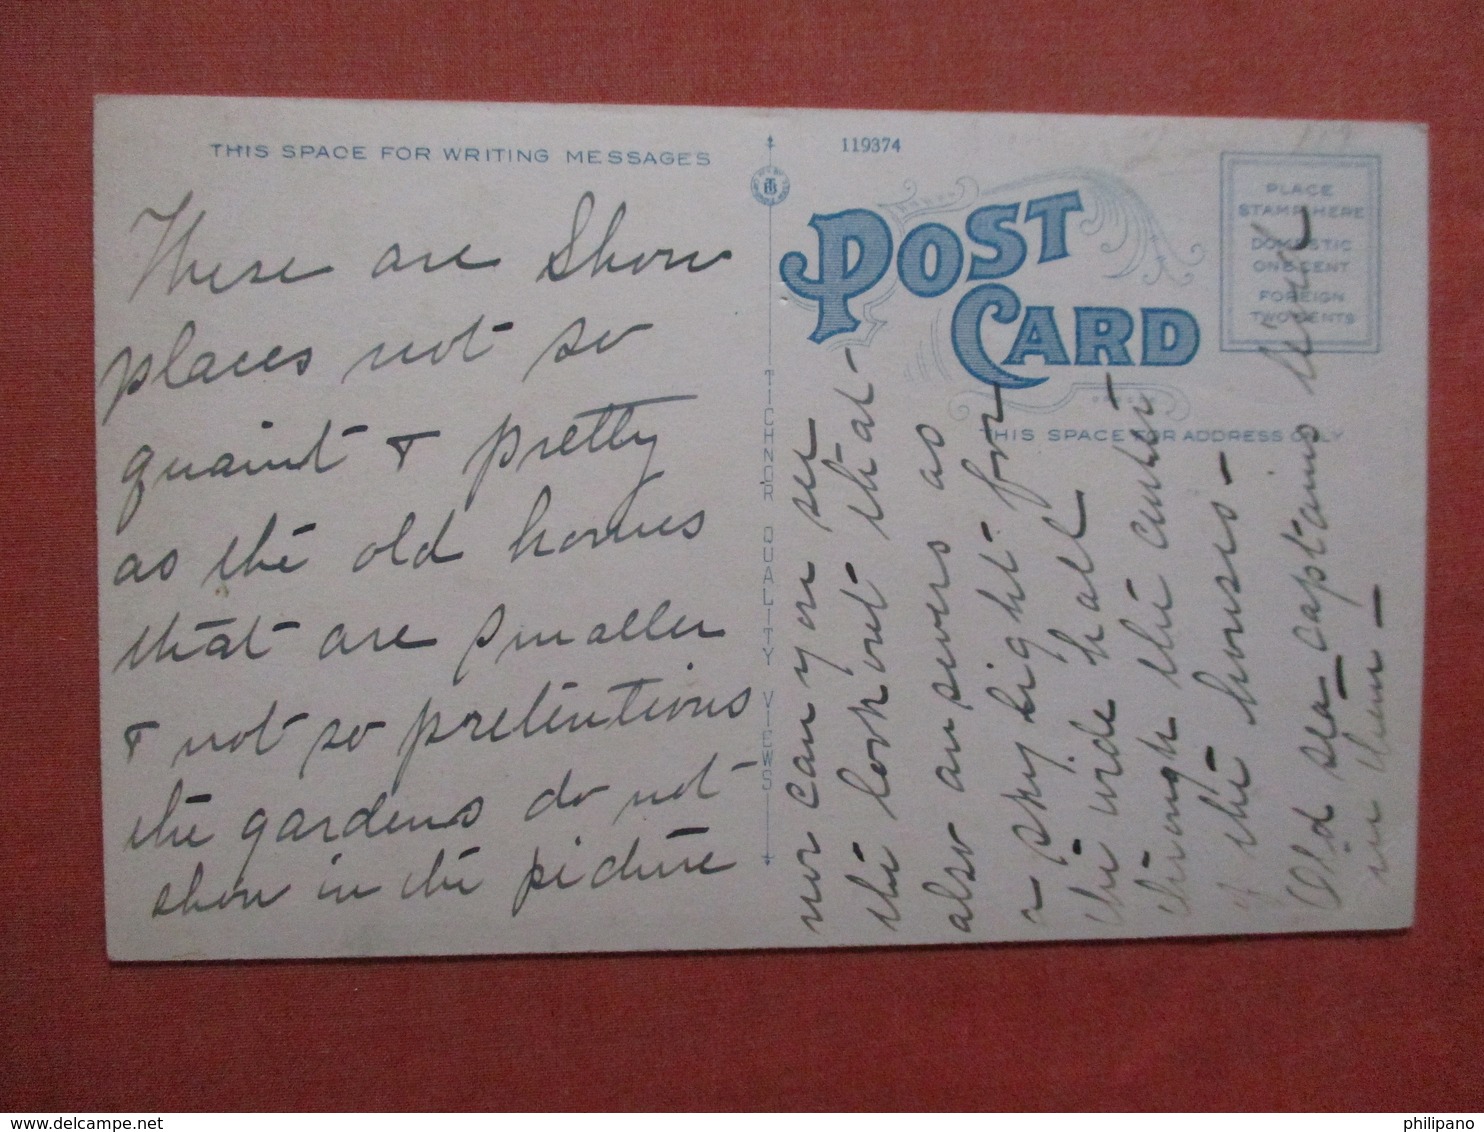 THIS SPACE FOR WRITING MESSAGES
These are Show
places not so
quaint & pretty
as the old homes
that are smaller
& not so pretentious
the gardens do not
show in the picture
TICHNOR QUALITY VIEWS
119374
POST
CARD
PLACE
STAMP HERE
DOMESTIC
ONE CENT
FOREIGN
TWO CENTS
THIS SPACE FOR ADDRESS ONLY
nor can you see
the lookout that-
also answers as
a sky light for
the wide hall
through the center
of the houses-
Old sea captains lived
in them-
philipano